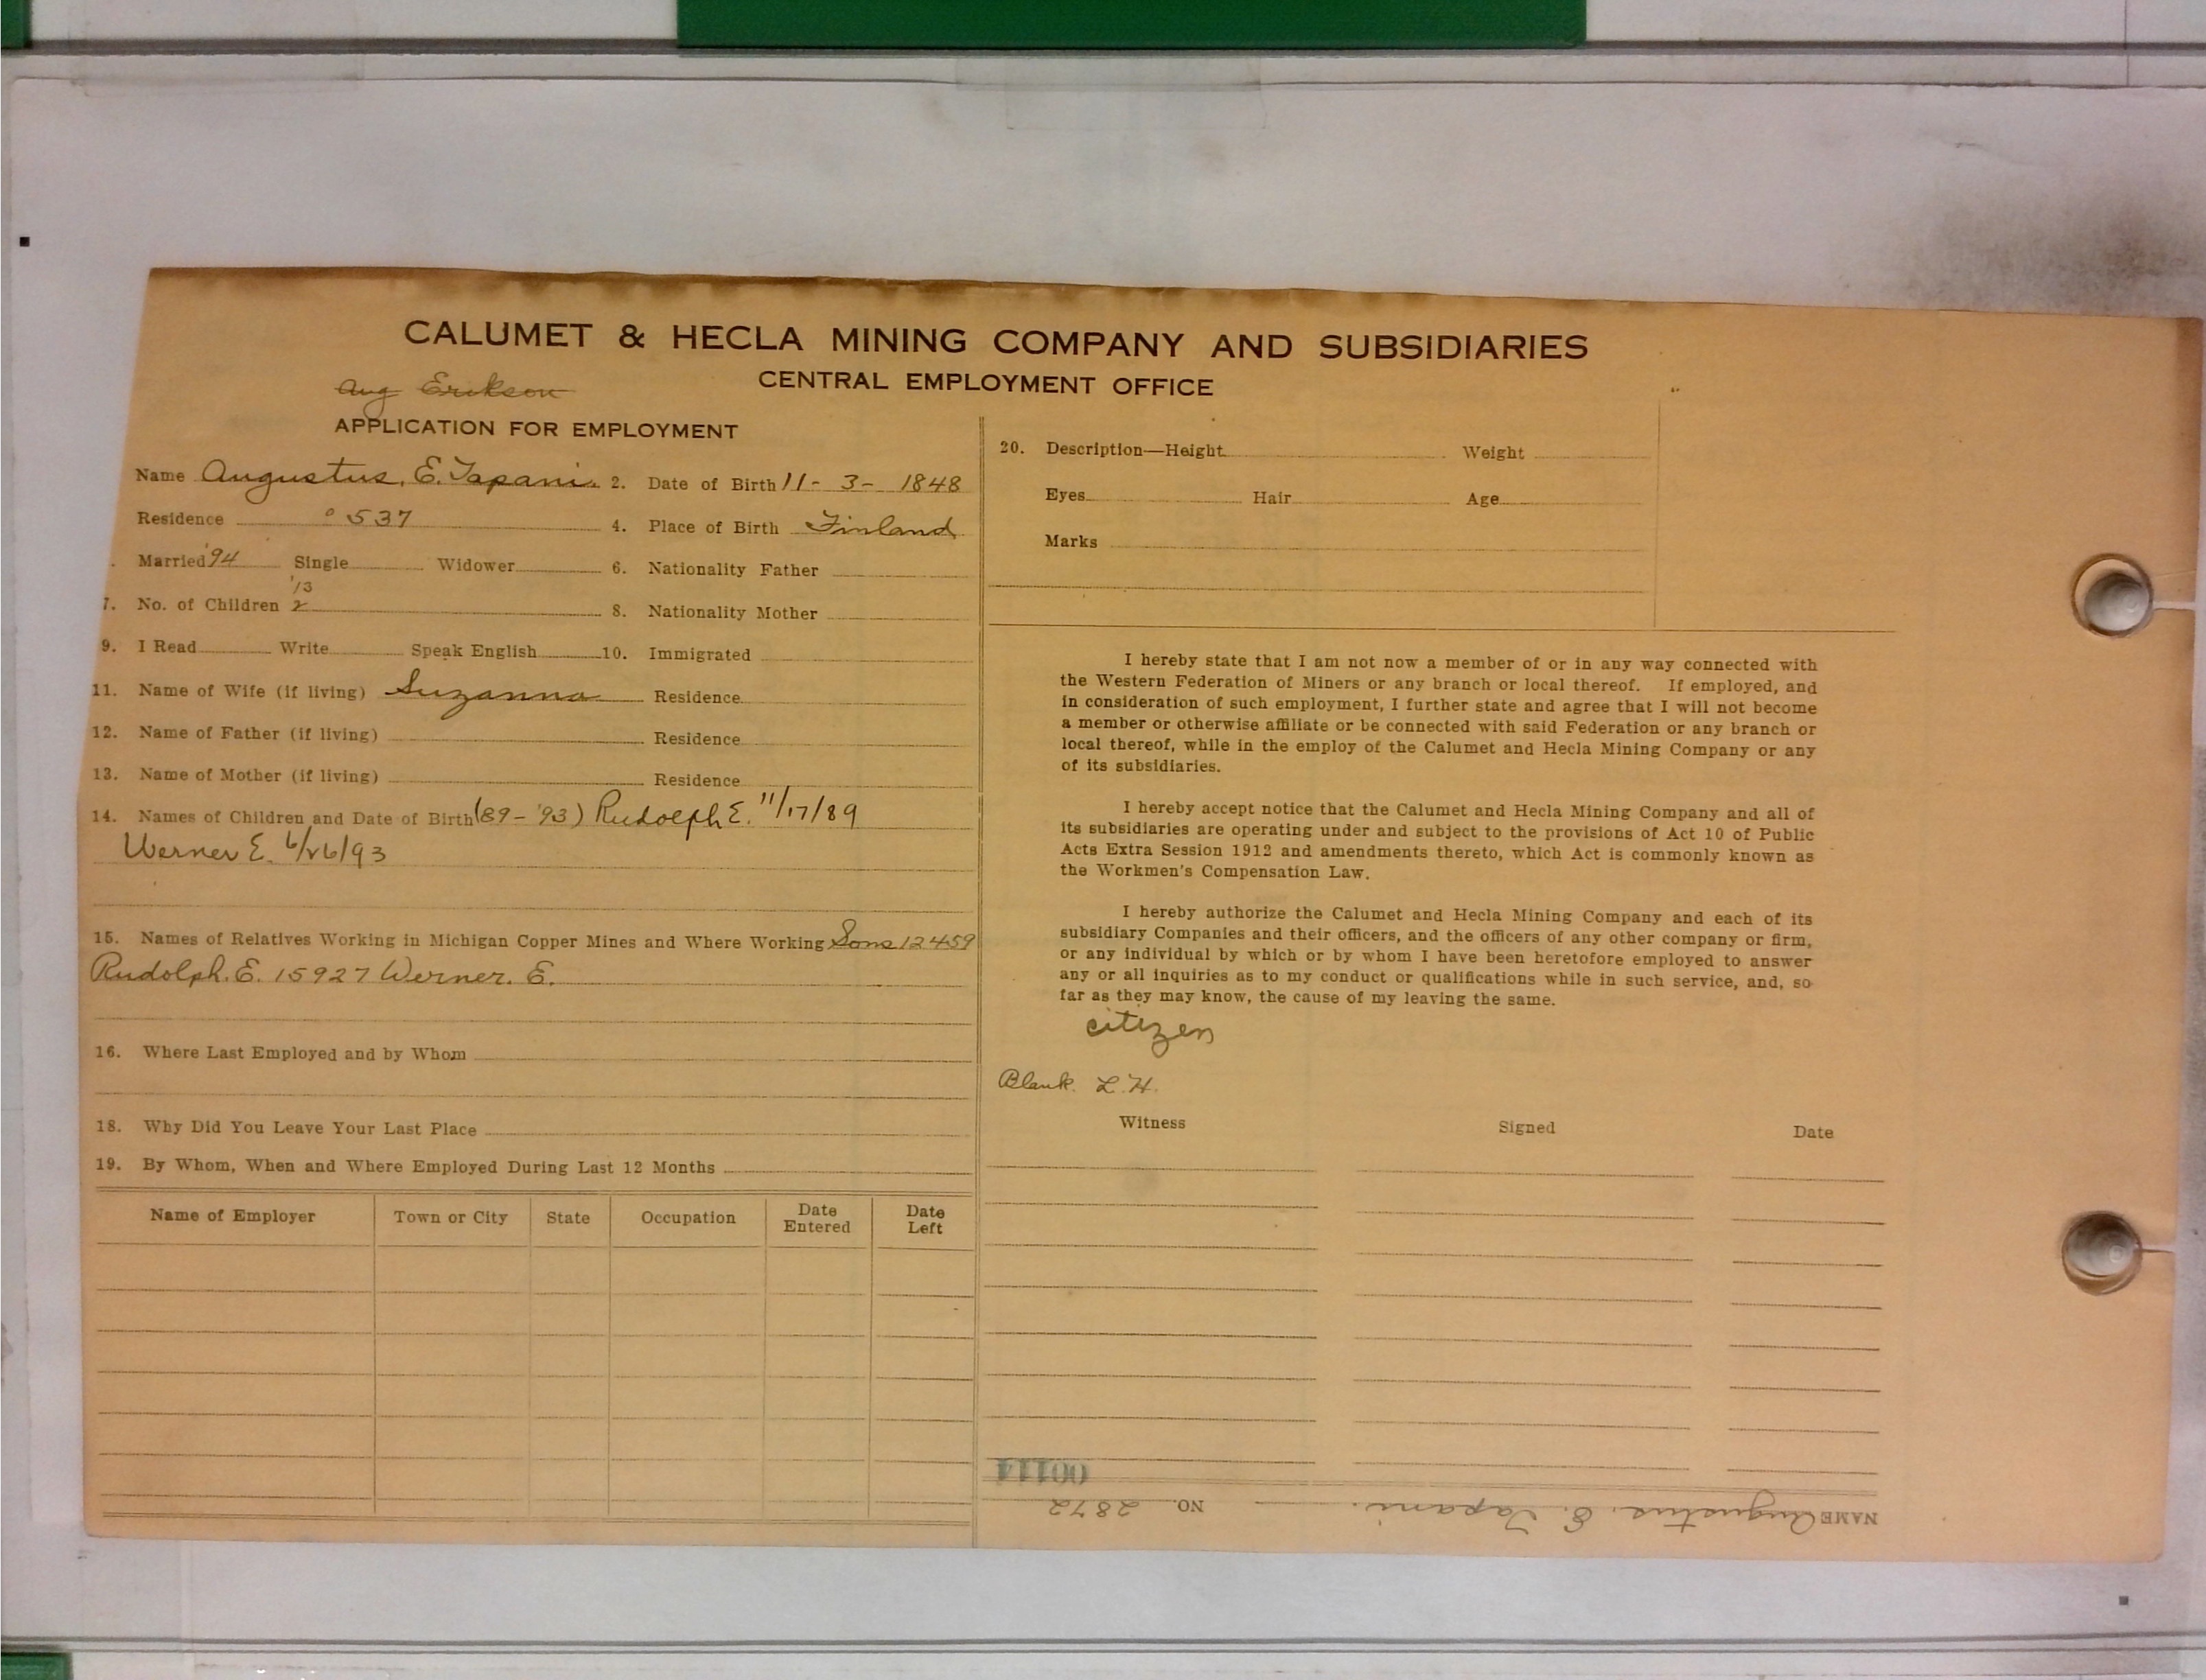 CALUMET & HECLA MINING COMPANY AND SUBSIDIARIES
CENTRAL EMPLOYMENT OFFICE
Aug Erikson
APPLICATION FOR EMPLOYMENT
Name Augustus, E. Tapani 2. Date of Birth 11-3-1848
Residence 537 4. Place of Birth Finland
Married '94 Single Widower 6. Nationality Father
'13
7. No. of Children 2 8. Nationality Mother
9. I Read Write Speak English 10. Immigrated
11. Name of Wife (if living) Suzanna Residence
12. Name of Father (if living) Residence
13. Name of Mother (if living) Residence
14. Names of Children and Date of Birth (89-'93) Rudolph E. 11/17/89
Werner E. 6/26/93
15. Names of Relatives Working in Michigan Copper Mines and Where Working Sons 12459
Rudolph. E. 15927 Werner. E.
16. Where Last Employed and by Whom
18. Why Did You Leave Your Last Place
19. By Whom, When and Where Employed During Last 12 Months
Name of Employer Town or City State Occupation Date Entered Date Left
20. Description—Height Weight
Eyes Hair Age
Marks
I hereby state that I am not now a member of or in any way connected with
the Western Federation of Miners or any branch or local thereof. If employed, and
in consideration of such employment, I further state and agree that I will not become
a member or otherwise affiliate or be connected with said Federation or any branch or
local thereof, while in the employ of the Calumet and Hecla Mining Company or any
of its subsidiaries.
I hereby accept notice that the Calumet and Hecla Mining Company and all of
its subsidiaries are operating under and subject to the provisions of Act 10 of Public
Acts Extra Session 1912 and amendments thereto, which Act is commonly known as
the Workmen's Compensation Law.
I hereby authorize the Calumet and Hecla Mining Company and each of its
subsidiary Companies and their officers, and the officers of any other company or firm,
or any individual by which or by whom I have been heretofore employed to answer
any or all inquiries as to my conduct or qualifications while in such service, and, so
far as they may know, the cause of my leaving the same.
citizen
Blank. L.H.
Witness Signed Date
00114
NAME Augustus, E. Tapani. NO. 2872